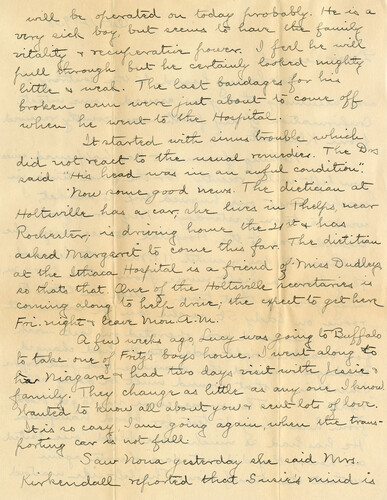 will be operated on today probably. He is a
very sick boy, but seems to have the family
vitality & recuperative power. I feel he will
pull through but he certainly looked mighty
little & weak. The last bandages for his
broken arm were just about to come off
when he went to the Hospital.
It started with sinus trouble which
did not react to the usual remedies. The Drs
said "His head was in an awful condition".
Now some good news. The dietician at
Holtsville has a car, she lives in Phelps, near
Rochester, is driving home the 21st & has
asked Margaret to come this far. The dietitian
at the Ithaca Hospital is a friend of Miss Dudley,
so thats that. One of the Holtsville secretaries is
coming along to help drive, the expect to get here
Fri. night & leave Mon. A.M.
A few weeks ago, Lucy was going to Buffalo
to take one of Fritz's boys home. I went along to
Niagara & had two days visit with Jessie &
family. They change as little as any one I know.
Wanted to know all about you & sent lots of love.
It is so easy. I am going again, when the trans-
porting car is not full.
Saw Nona yesterday she said Mrs.
Kirkendall reported that Susie's mind is